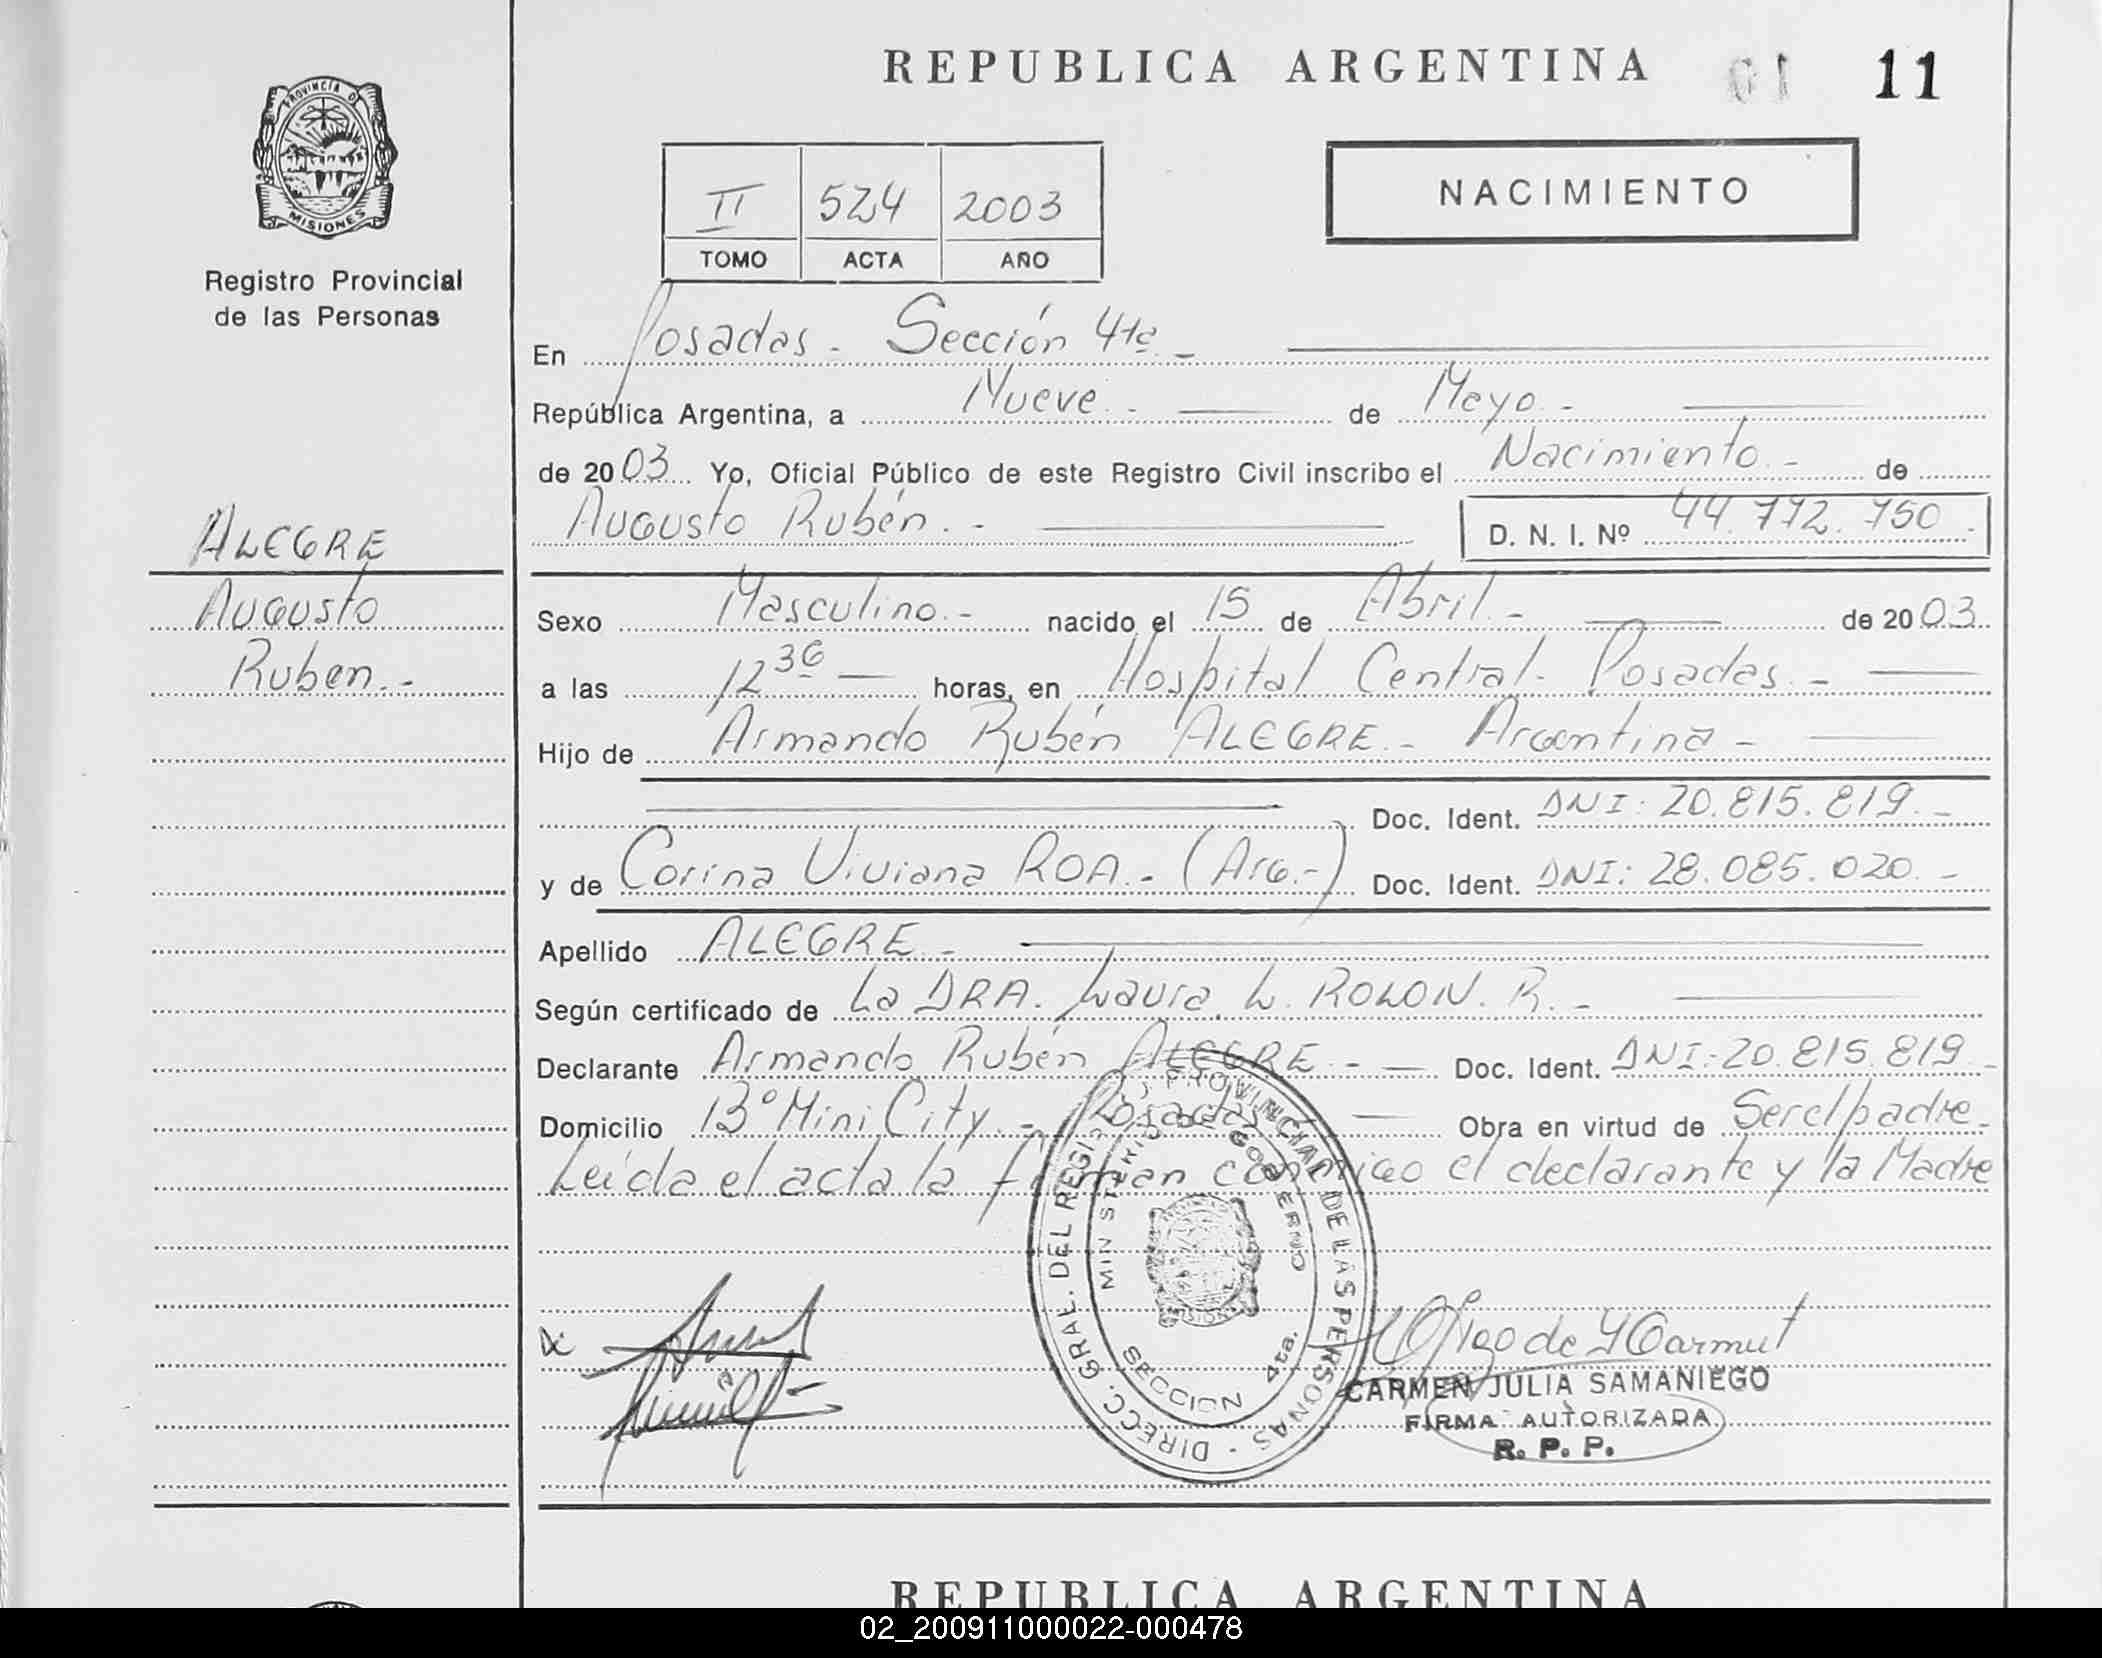 REPUBLICA ARGENTINA 01 11
PROVINCIA DE MISIONES
Registro Provincial
de las Personas
II 524 2003
TOMO ACTA AÑO
NACIMIENTO
En Posadas - Sección 4ta -
República Argentina, a Nueve - de Mayo -
de 2003 Yo, Oficial Público de este Registro Civil inscribo el Nacimiento - de
Augusto Rubén. - D. N. I. Nº 44.772.750
ALEGRE
Augusto
Ruben.-
Sexo Masculino.- nacido el 15 de Abril.- de 2003
a las 12 30 horas, en Hospital Central- Posadas.-
Hijo de Armando Rubén ALEGRE.- Argentina -
Doc. Ident. DNI: 20.815.819.-
y de Corina Viviana ROA.- (Arg.-) Doc. Ident. DNI: 28.085.020.-
Apellido ALEGRE.-
Según certificado de La DRA. Laura L. ROLON. R.-
Declarante Armando Rubén ALEGRE.- Doc. Ident. DNI: 20.815.819
Domicilio Bº Mini City.- Posadas Obra en virtud de Ser el padre-
Leída el acta la firman conmigo el declarante y la Madre
DIRECC. GRAL. DEL REGISTRO PROVINCIAL DE LAS PERSONAS -
MINISTERIO DE GOBIERNO
SECCION 4ta.
CARMEN JULIA SAMANIEGO
FIRMA AUTORIZADA
R. P. P.
REPUBLICA ARGENTINA
02_200911000022-000478